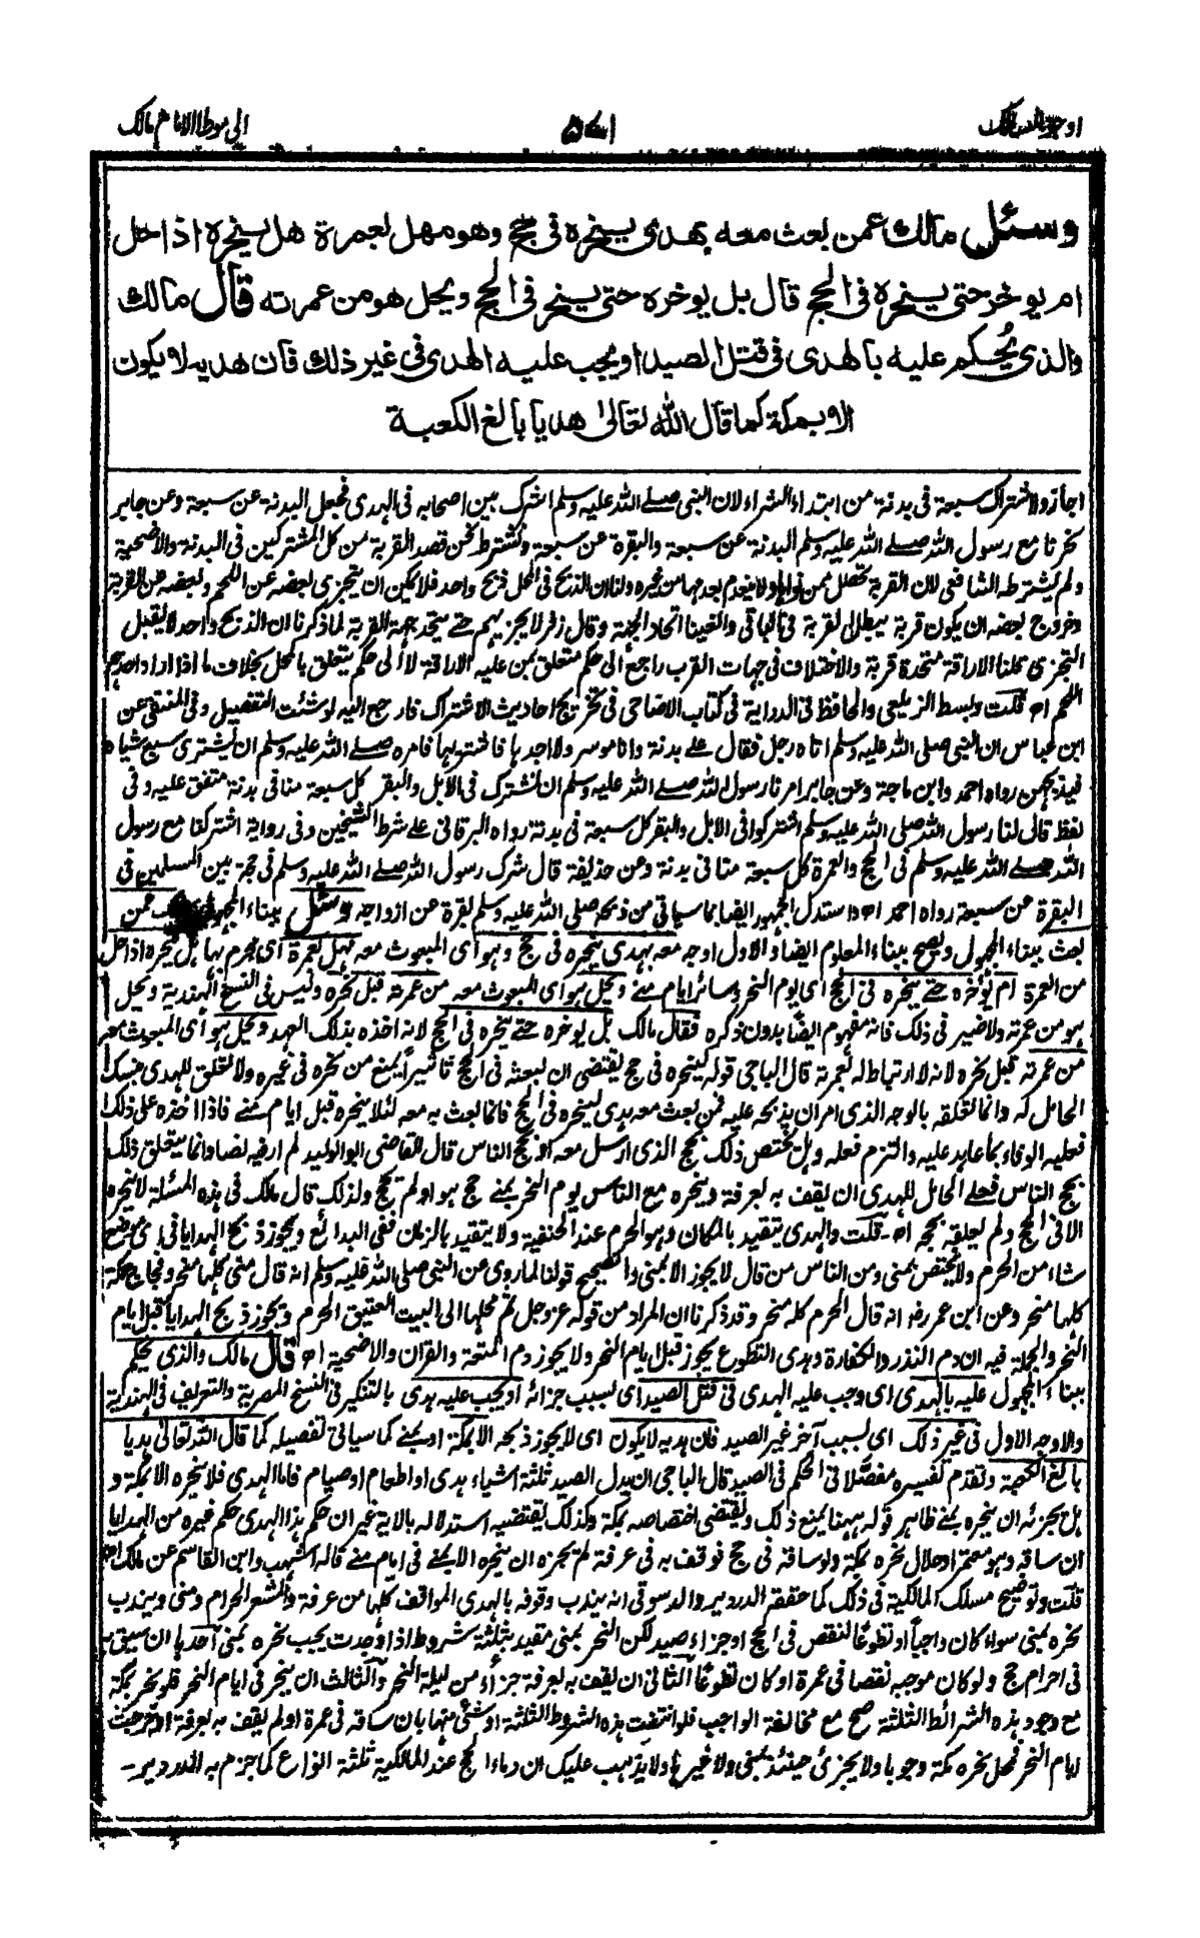 اوجز المسالك
٥٧١
الى موطا الامام مالك
وسئل مالك عمن بعث معه بهدى ينحره فى حج وهو مهل بعمرة هل ينحره اذا حل
ام يوخر حتى ينحره فى الحج قال بل يوخره حتى ينحر فى الحج ويحل هو من عمرته قال مالك
والذى يُحكم عليه بالهدى فى قتل الصيد او يجب عليه الهدى فى غير ذلك فان هديه لا يكون
الا بمكة كما قال الله تعالى هديا بالغ الكعبة
اجازوا الاشتراك سبعة فى بدنة من ابتداء الشراء لان النبى صلے الله عليه وسلم اشرك بين اصحابه فى الهدى فجعل البدنة عن سبعة وعن جابر
نحرنا مع رسول الله صلے الله عليه وسلم البدنة عن سبعة والبقرة عن سبعة ونشترط نحن قصد القربة من كل المشتركين فى البدنة والاضحية
ولم يشترطه الشافعى لان القربة تحصل ممن نواها ولا ينعدم بعدمها من غيره ولنا ان الذبح فى المحل ذبح واحد فلا يمكن ان يتجزى بعضه عن اللحم وبعضه عن القربة
وخروج بعضه ان يكون قربة يبطل القربة فى الباقى والغينا اتحاد الجهة وقال زفر لا يجزيهم حتے يتحد جهة القربة لما ذكرنا ان الذبح واحد لا يقبل
التجزى قلنا الاراقة متحدة قربة والاختلاف فى جهات القرب راجع الى حكم متعلق بمن عليه الاراقة لا الى حكم يتعلق بالمحل بخلاف ما اذا اراد احدهم
اللحم اه قلت وبسط الزيلعى والحافظ فى الدراية فى كتاب الاضاحى فى تخريج احاديث الاشتراك فارجع اليه لو شئت التفصيل وفى المنتقى عن
ابن عباس ان النبى صلى الله عليه وسلم اتاه رجل فقال علے بدنة وانا موسر ولا اجدها فاشتريها فامره صلے الله عليه وسلم ان يشترى سبع شياه
فيذبحهن رواه احمد وابن ماجة وعن جابر امرنا رسول الله صلے الله عليه وسلم ان نشترك فى الابل والبقر كل سبعة منا فى بدنة متفق عليه وفى
لفظ قال لنا رسول الله صلى الله عليه وسلم اشتركوا فى الابل والبقر كل سبعة فى بدنة رواه البرقانى علے شرط الشيخين وفى رواية اشتركنا مع رسول
الله صلے الله عليه وسلم فى الحج والعمرة كل سبعة منا فى بدنة وعن حذيفة قال شرك رسول الله صلے الله عليه وسلم فى حجة بين المسلمين فى
البقرة عن سبعة رواه احمد اه واستدل الجمهور ايضا بما سياتى من ذبحه صلى الله عليه وسلم بقرة عن ازواجه وسئل ببناء المجهول عمن
بعث ببناء المجهول ويصح ببناء المعلوم ايضا والاول اوجه معه بهدى ينحره فى حج وهو اى المبعوث معه مهل بعمرة اى محرم بها هل ينحره اذا حل
من العمرة ام يوخره حتے ينحره فى الحج اى يوم النحر وسائر ايام منے ويحل هو اى المبعوث معه من عمرته قبل نحره وليس فى النسخ الهندية ويحل
هو من عمرته ولا ضير فى ذلك فانه مفهوم ايضا بدون ذكره فقال مالك بل يوخره حتے ينحره فى الحج لانه اخذه بذلك العهد ويحل هو اى المبعوث معه
من عمرته قبل نحره لانه لا ارتباط له بعمرته قال الباجى قوله ينحره فى حج يقتضى ان لبعثه فى الحج تاثيرا يمنع من نحره فى غيره ولا تعلق للهدى بنسك
الحامل له وانما تعلقه بالوجه الذى امر ان يذبحه عليه فمن بعث معه بهدى لينحره فى الحج فانما بعث به معه لئلا ينحره قبل ايام منے فاذا اخذه على ذلك
فعليه الوفاء بما عاهد عليه والتزم فعله وهل يختص ذلك بحج الذى ارسل معه او بحج الناس قال القاضى ابو الوليد لم ار فيه نصا وانما يتعلق ذلك
بحج الناس فعلے الحامل للهدى ان يقف به بعرفة وينحره مع الناس يوم النحر بمنے حج هو او لم يحج ولذلك قال مالك فى هذه المسئلة لا ينحره
الا فى الحج ولم يعلقه بحجه اه - قلت والهدى يتقيد بالمكان وهو الحرم عند الحنفية ولا يتقيد بالزمان ففى البدائع ويجوز ذبح الهدايا فى اى موضع
شاء من الحرم ولا يختص بمنى ومن الناس من قال لا يجوز الا بمنى والصحيح قولنا لما روى عن النبى صلى الله عليه وسلم انه قال منى كلها منحر وفجاج مكة
كلها منحر وعن ابن عمر رض انه قال الحرم كله منحر وقد ذكرنا ان المراد من قوله عز وجل ثم محلها الى البيت العتيق الحرم ويجوز ذبح الهدايا قبل ايام
النحر والجملة فيه ان دم النذر والكفارة وهدى التطوع يجوز قبل ايام النحر ولا يجوز دم المتعة والقران والاضحية اه قال مالك والذى يحكم
ببناء المجهول عليه بالهدى اى وجب عليه الهدى فى قتل الصيد اى بسبب جزائه او يجب عليه هدى بالتنكير فى النسخ المصرية والتعريف فى الهندية
والاوجه الاول فى غير ذلك اى لسبب آخر غير الصيد فان هديه لا يكون اى لا يجوز ذبحه الا بمكة او بمنے كما سياتى تفصيله كما قال الله تعالى هديا
بالغ الكعبة وتقدم تفسيره مفصلا فى الحكم فى الصيد قال الباجى ان بدل الصيد ثلثة اشياء هدى او اطعام او صيام فاما الهدى فلا ينحره الا بمكة و
هل يجزئه ان ينحره بمنے ظاهر قوله ههنا يمنع ذلك ويقتضى اختصاصه بمكة وكذلك يقتضيه استدلاله بالاية غير ان حكم هذا الهدى حكم غيره من الهدايا
ان ساقه وهو معتمر او حلال نحره بمكة ولو ساقه فى حج فوقف به فى عرفة لم يجزه ان ينحره الا بمنے فى ايام منے قاله اشهب وابن القاسم عن مالك اه
قلت وتوضيح مسلك المالكية فى ذلك كما حققه الدردير والدسوقى انه يندب وقوفه بالهدى المواقف كلها من عرفة والمشعر الحرام ومنى ويندب
نحره بمنى سواء كان واجباً او تطوعًا لنقص فى الحج او جزاء صيد لكن النحر بمنى مقيد بثلثة شروط اذا وجدت يجب نحره بمنى احدها ان سيق به
فى احرام حج ولو كان موجبه نقصا فى عمرة او كان تطوعا الثانى ان يقف به بعرفة جزءا من ليلة النحر والثالث ان ينحر فى ايام النحر فلو نحر بمكة
مع وجود هذه الشرائط الثلثة صح مع مخالفة الواجب فلو انتفت هذه الشروط الثلثة او شئ منها بان ساقه فى عمرة او لم يقف به بعرفة او خرجت
ايام النحر فمحل نحره مكة وجوبا ولا يجزئ حينئذ بمنى ولا غيرها ولا يذهب عليك ان دماء الحج عند المالكية ثلثة انواع كما جزم به الدردير -